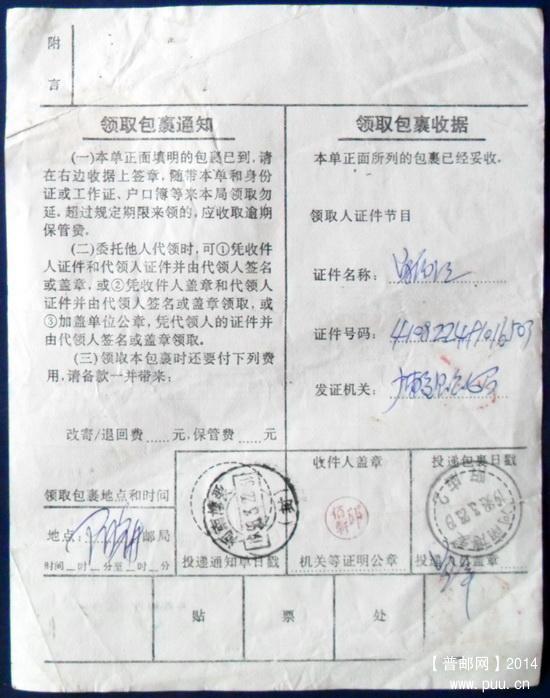 附
言
领取包裹通知
(一)本单正面填明的包裹已到，请
在右边收据上签章，随带本单和身份
证或工作证、户口簿等来本局领取勿
延。超过规定期限来领的，应收取逾期
保管费。
(二)委托他人代领时，可①凭收件
人证件和代领人证件并由代领人签名
或盖章，或②凭收件人盖章和代领人
证件并由代领人签名或盖章领取，或
③加盖单位公章，凭代领人的证件并
由代领人签名或盖章领取。
(三)领取本包裹时还要付下列费
用，请备款一并带来：
改寄/退回费……元，保管费……元
领取包裹地点和时间
地点：邮局
时间—时—分至—时—分
投递通知单日戳
领取包裹收据
本单正面所列的包裹已经妥收。
领取人证件节目
证件名称：
证件号码：
发证机关：
收件人盖章
机关等证明公章
投递包裹日戳
投递人员盖章
贴 票 处
【普邮网】2014
www.puu.cn